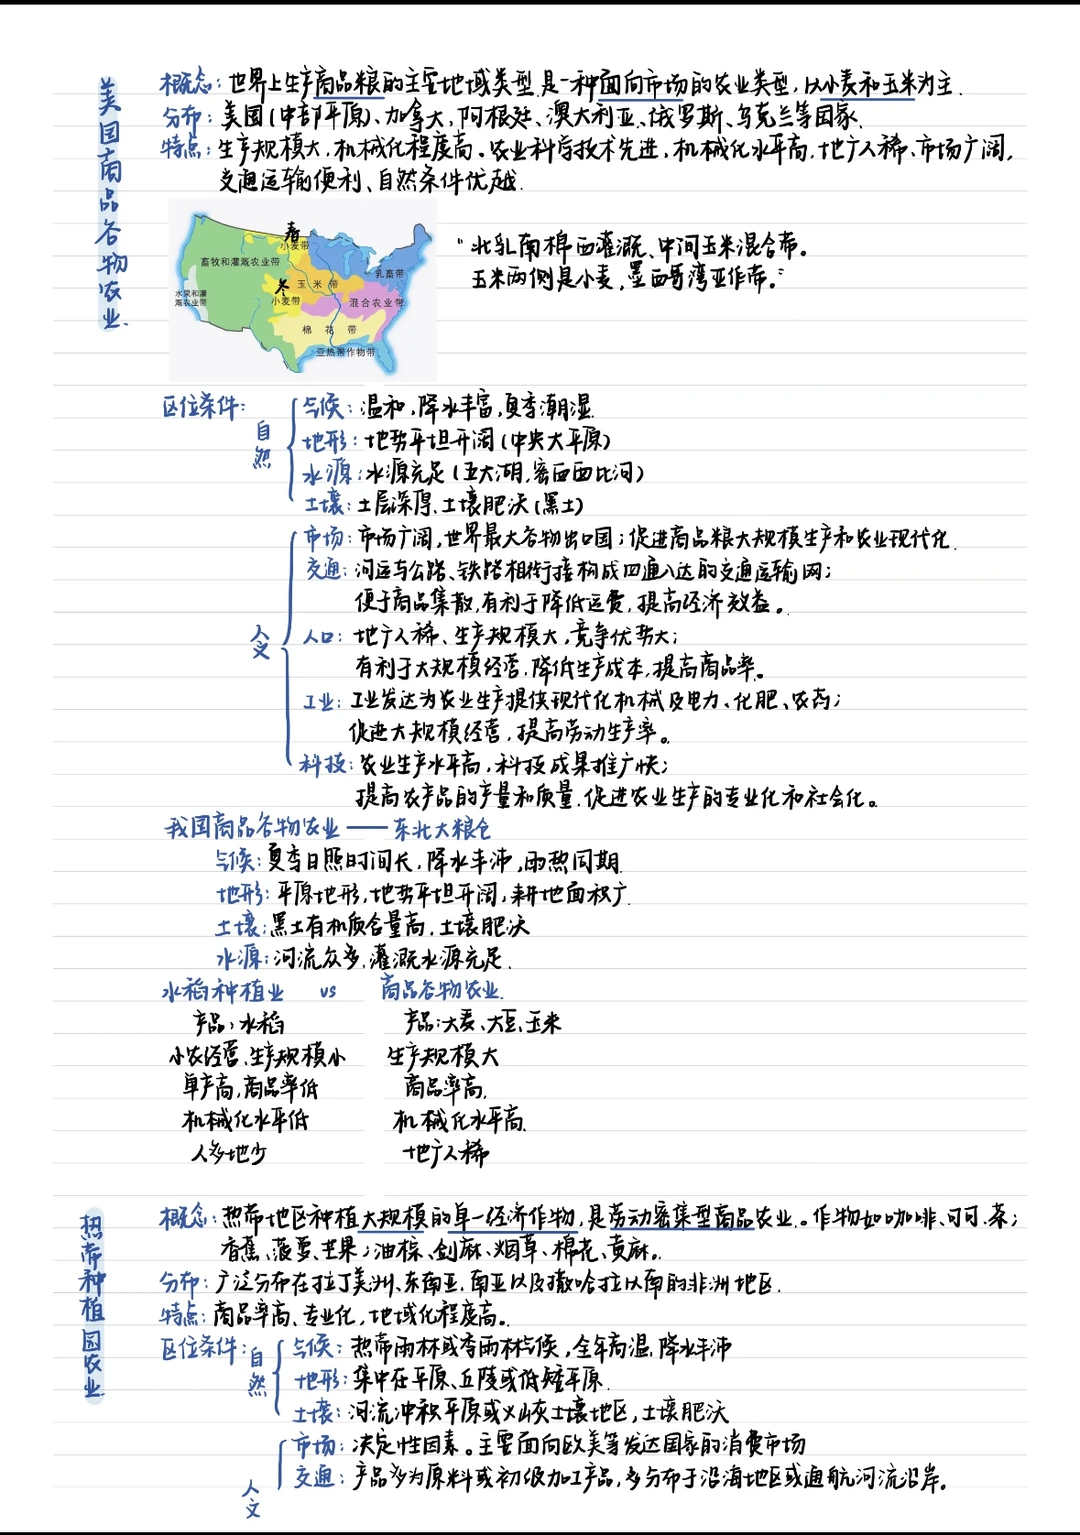 美国商品谷物农业.
概念: 世界上生产商品粮的主要地域类型.是一种面向市场的农业类型,以小麦和玉米为主.
分布: 美国(中部平原)、加拿大,阿根廷、澳大利亚、俄罗斯、乌克兰等国家.
特点: 生产规模大,机械化程度高、农业科学技术先进,机械化水平高,地广人稀、市场广阔,
交通运输便利、自然条件优越.
春
小麦带
畜牧和灌溉农业带
乳畜带
冬 玉米带
水果和灌溉农业带
小麦带
混合农业带
棉花带
亚热带作物带
“北乳南棉西灌溉、中间玉米混合带。
玉米两侧是小麦,墨西哥湾亚作带。”
区位条件:
自然
气候: 温和,降水丰富,夏季潮湿.
地形: 地势平坦开阔(中央大平原)
水源: 水源充足(五大湖,密西西比河)
土壤: 土层深厚、土壤肥沃(黑土)
人文
市场: 市场广阔,世界最大谷物出口国;促进商品粮大规模生产和农业现代化.
交通: 河运与公路、铁路相衔接构成四通八达的交通运输网;
便于商品集散,有利于降低运费,提高经济效益。
人口: 地广人稀、生产规模大,竞争优势大;
有利于大规模经营,降低生产成本,提高商品率。
工业: 工业发达为农业生产提供现代化机械及电力、化肥、农药;
促进大规模经营,提高劳动生产率。
科技: 农业生产水平高,科技成果推广快;
提高农产品的产量和质量.促进农业生产的专业化和社会化。
我国商品谷物农业——东北大粮仓
气候: 夏季日照时间长,降水丰沛,雨热同期.
地形: 平原地形,地势平坦开阔,耕地面积广.
土壤: 黑土有机质含量高,土壤肥沃
水源: 河流众多,灌溉水源充足.
水稻种植业 vs 商品谷物农业.
产品: 水稻 产品:大麦、大豆、玉米
小农经营、生产规模小 生产规模大
单产高,商品率低 商品率高.
机械化水平低 机械化水平高.
人多地少 地广人稀
热带种植园农业.
概念: 热带地区种植大规模的单一经济作物,是劳动密集型商品农业。作物如咖啡、可可、茶;
香蕉、菠萝、芒果;油棕、剑麻、烟草、棉花、黄麻。
分布: 广泛分布在拉丁美洲、东南亚,南亚以及撒哈拉以南的非洲地区.
特点: 商品率高、专业化,地域化程度高。
区位条件:
自然
气候: 热带雨林或季雨林气候,全年高温,降水丰沛
地形: 集中在平原、丘陵或低矮平原.
土壤: 河流冲积平原或火山灰土壤地区,土壤肥沃
人文
市场: 决定性因素。主要面向欧美等发达国家的消费市场
交通: 产品多为原料或初级加工产品,多分布于沿海地区或通航河流沿岸。